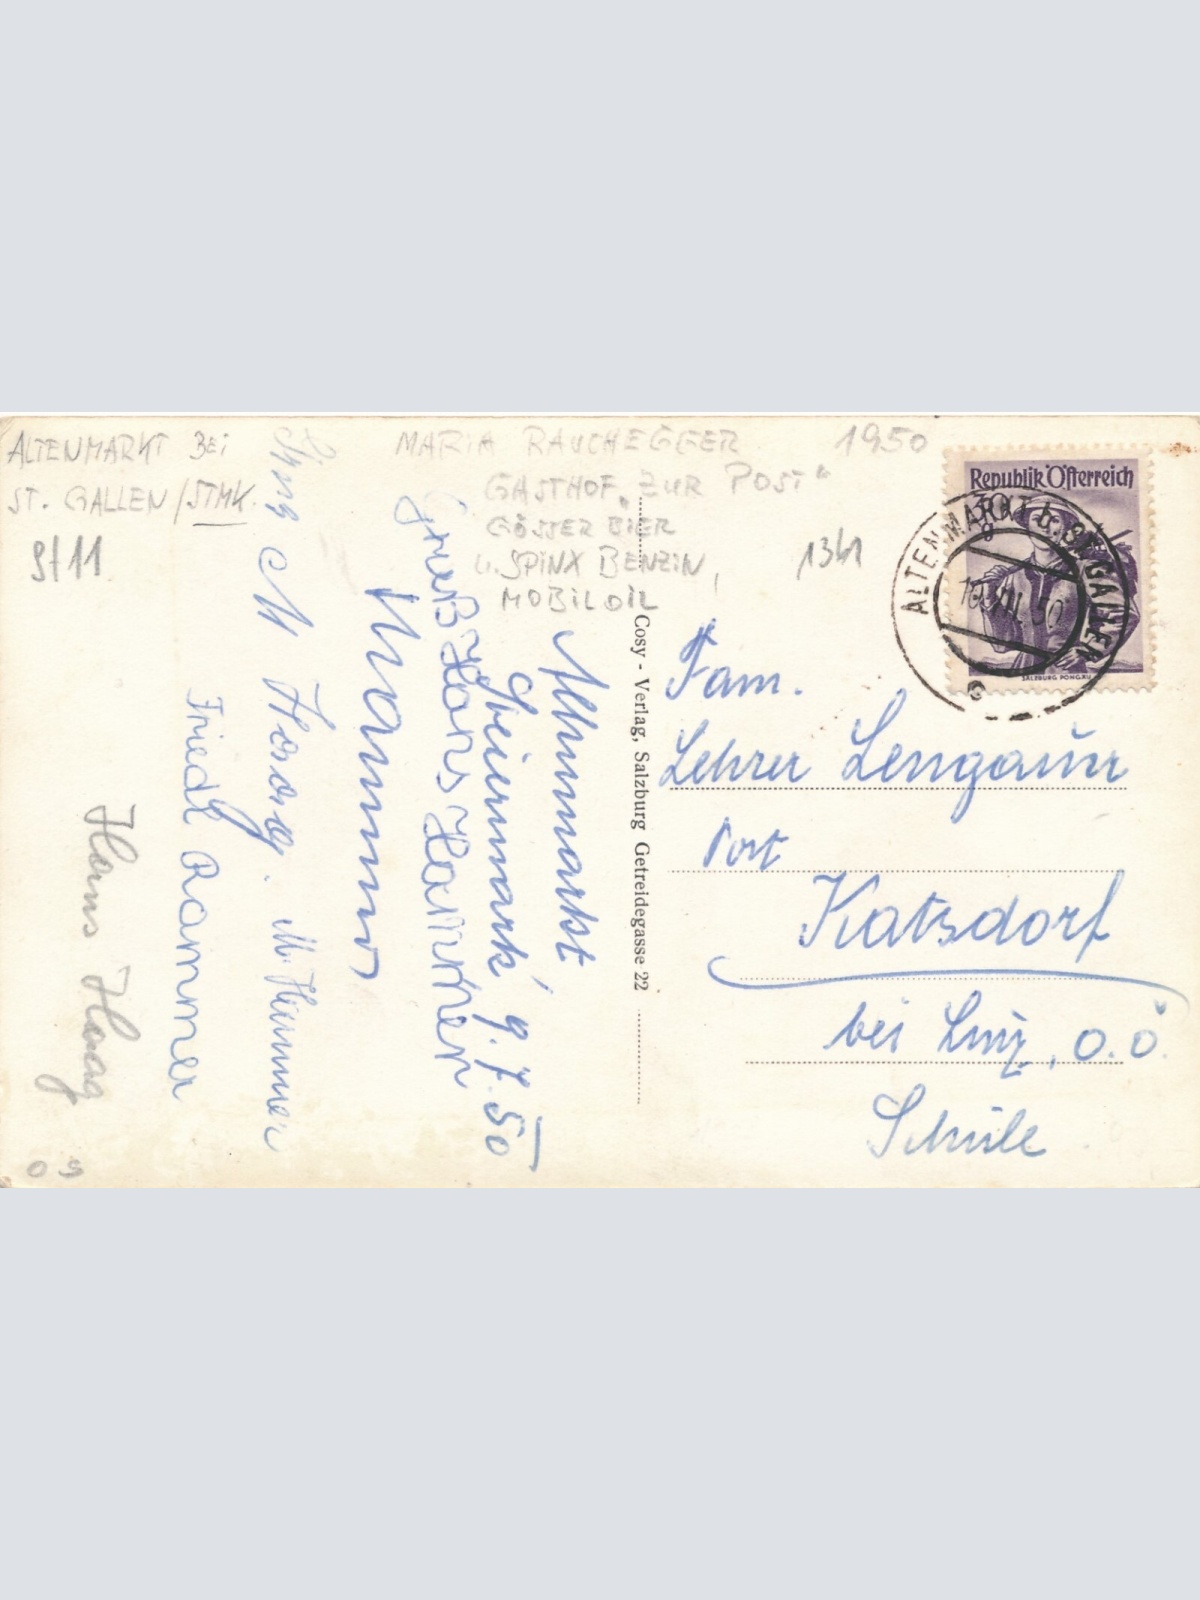 ALTENMARKT BEI
ST. GALLEN/STMK.
9/11
MARIA RAUCHEGGER
GASTHOF „ZUR POST“
GÖSSER BIER
U. SPINX BENZIN,
MOBILOIL
1950
1341
Republik Österreich
30
g
SALZBURG PONGAU
ALTENMARKT b. ST. GALLEN
50
Fam.
Lehrer Lengauer
Post
Katsdorf
bei Linz, O.Ö.
Schule
Cosy - Verlag, Salzburg Getreidegasse 22
Altenmarkt
Steiermark 9.7.50
Gruß Hans Hammer
Hammer
Haag. M. Hammer
Friedl Rammer
Hans Haag